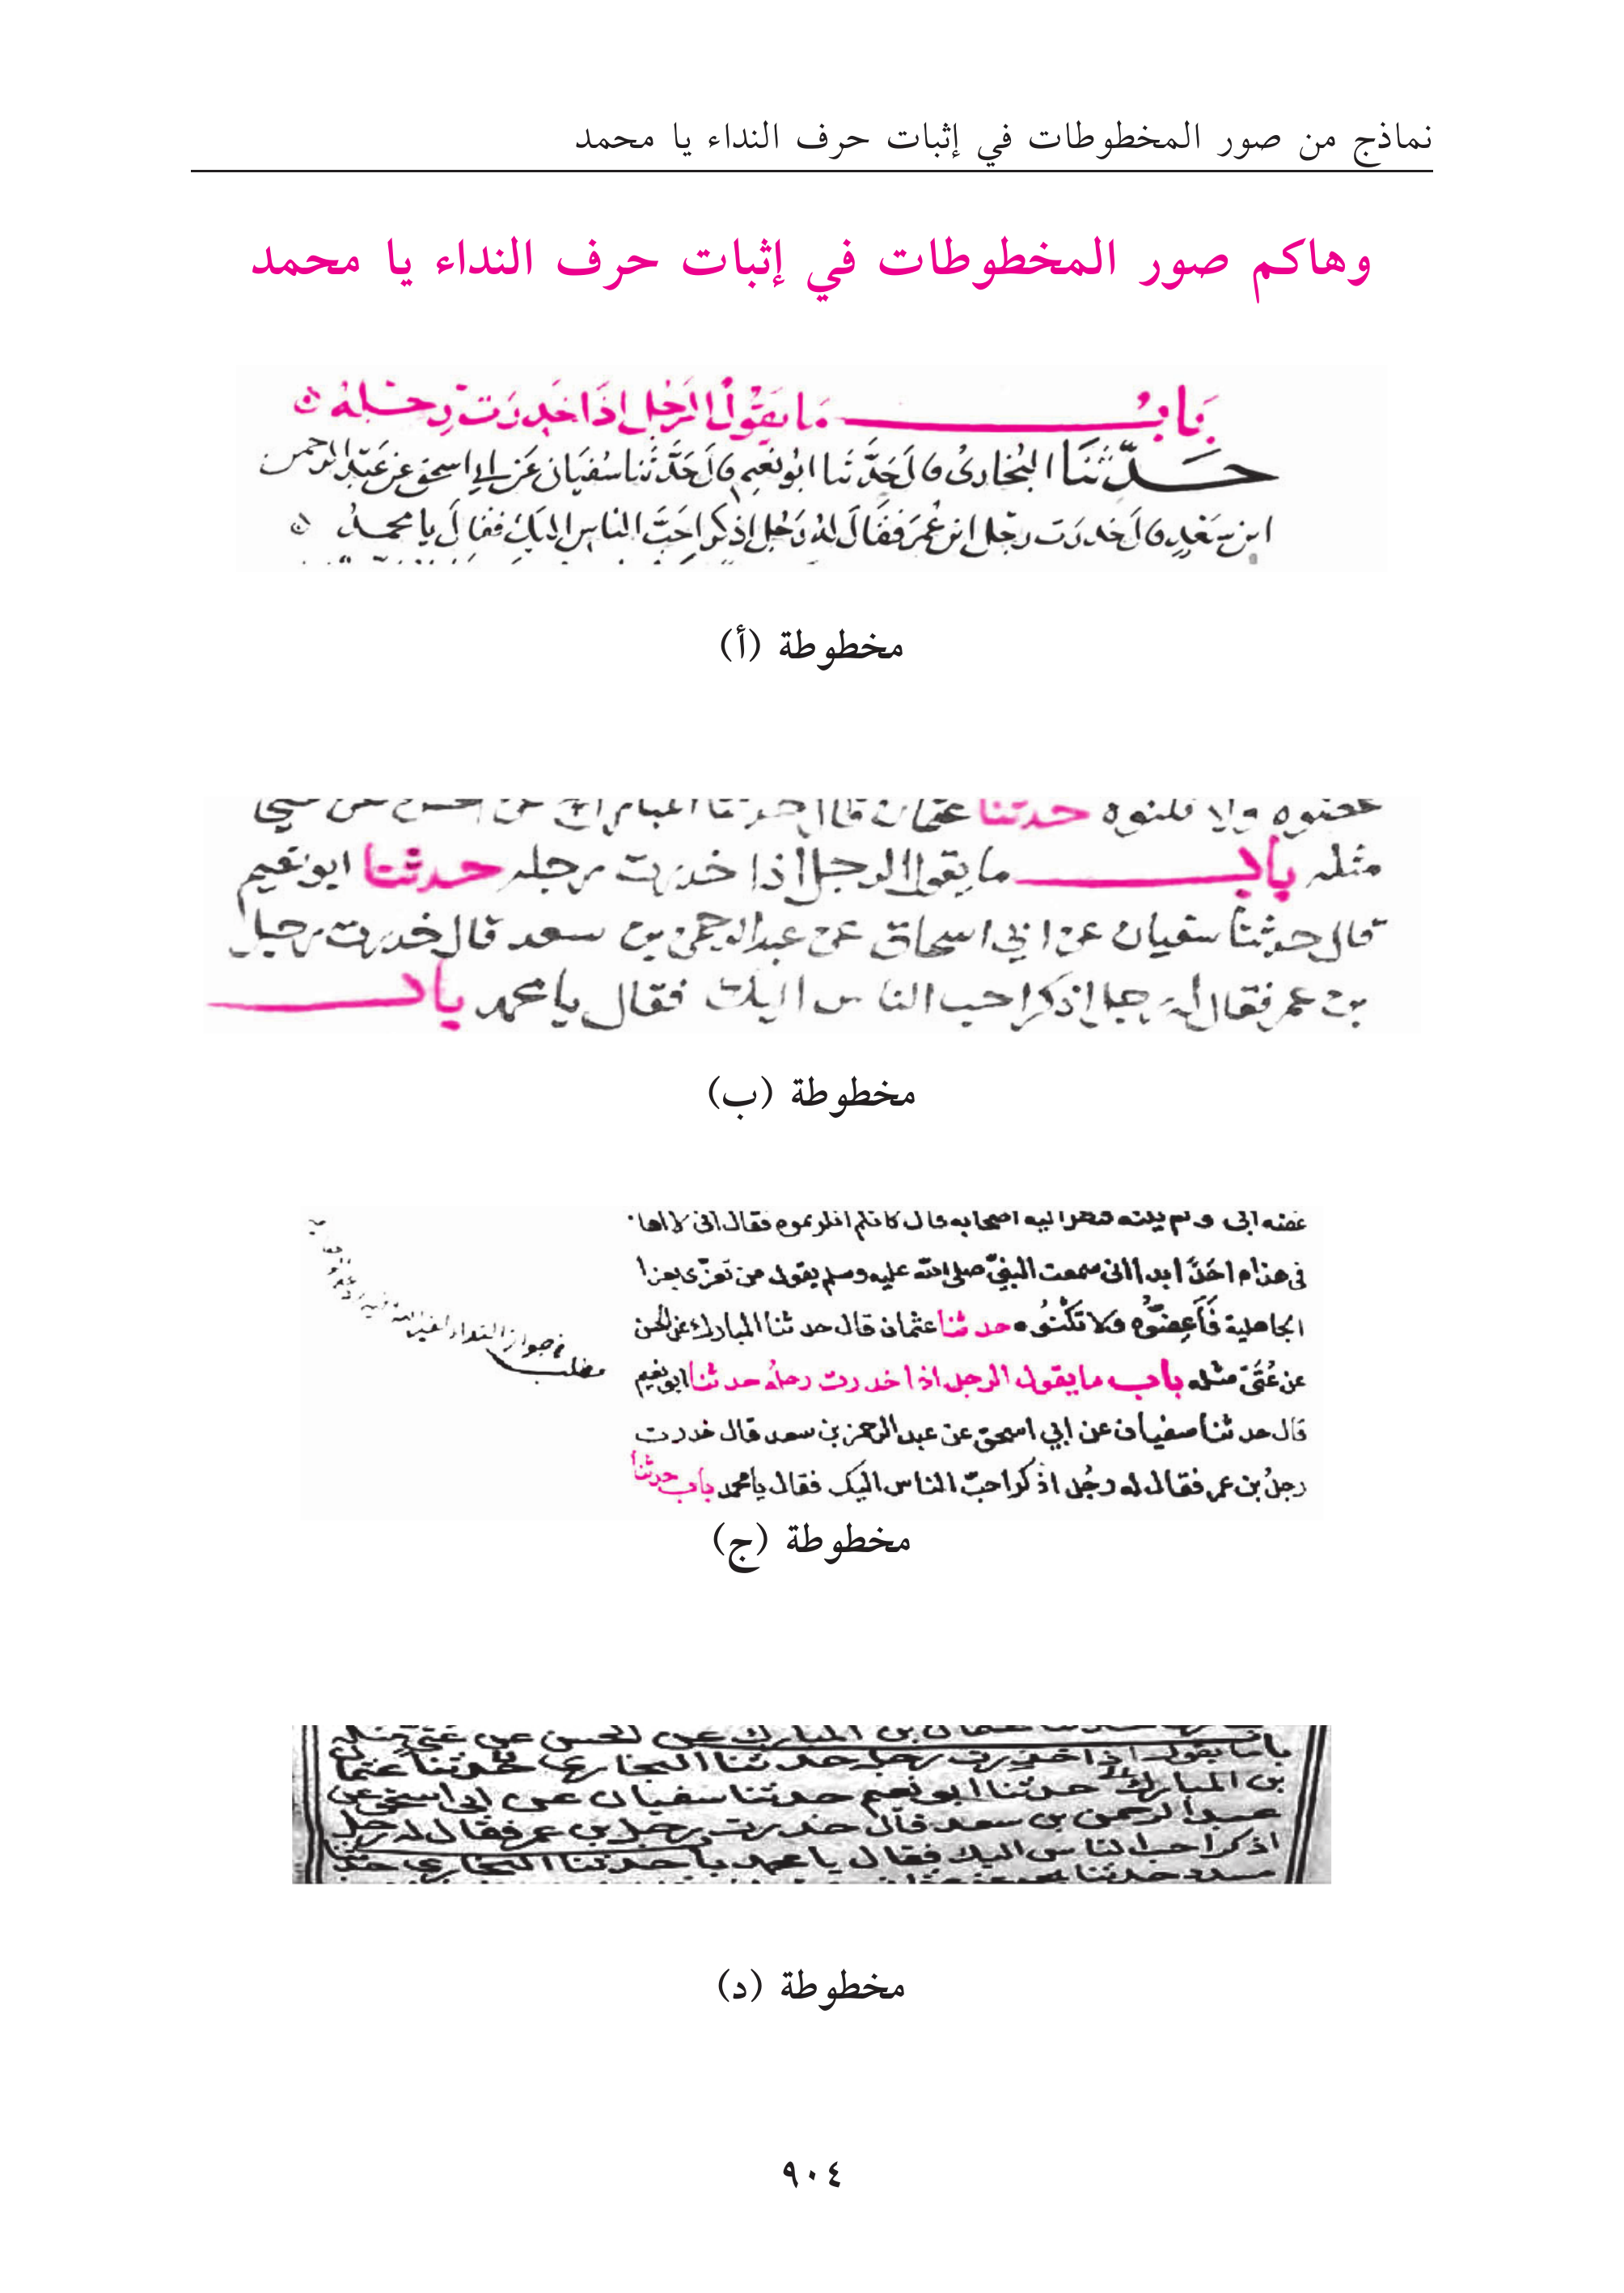 نماذج من صور المخطوطات في إثبات حرف النداء يا محمد
وهاكم صور المخطوطات في إثبات حرف النداء يا محمد
بَابُ مَا يَقُولُ الرَّجُل إذَا خَدِرَتْ رِجْلُهُ
حَدَّثَنَا البُخَاريُ قَالَ حَدَّثَنا ابُو نُعَيم قَالَ حَدَّثَنا سُفيَان عَن ابي اسحق عن عَبْد الرحمن
ابن سَعْدٍ قَالَ خدرَت رجْل ابن عُمَرَ فَقَالَ لهُ رَجُل اذكر احَبَّ الناس اليكَ فقالَ يا محمدُ
مخطوطة (أ)
مثله باب ما يقول الرجل اذا خدرت رجله حدثنا ابو نعيم
قال حدثنا سفيان عن ابي اسحاق عن عبد الرحمن بن سعد قال خدرت رجل
بن عمر فقال له رجل اذكر احب الناس اليك فقال يا محمد باب
مخطوطة (ب)
في هذا م احَدًا ابدا انى سمعت النبيّ صلى الله عليه وسلم يقول من تعزّى بعزا
الجاهلية فَأَعِضّوُه ولا تكْنُوُه حدثنا عثمان قال حدثنا المبارك عن الحسن
عن عُتَىّ مثله باب ما يقول الرجل اذا خدرت رجلهُ حدثنا ابو نعيم
قال حدثنا سفيان عن ابي اسحق عن عبد الرحمن بن سعد قال خدرت
رجلُ بن عمر فقال له رجُل اذكر احبّ الناس اليك فقال يا محمد باب حدثنا
مطلب في جواز النداء لغير الله
مخطوطة (ج)
باب ما يقول اذا خدرت رجله حدثنا البخاري حدثنا عثمان
بن المبارك حدثنا ابو نعيم حدثنا سفيان عن ابي اسحق عن
عبد الرحمن بن سعد قال خدرت رجل بن عمر فقال له رجل
اذكر احب الناس اليك فقال يا محمد باب حدثنا البخاري حدثنا
مخطوطة (د)
٩٠٤